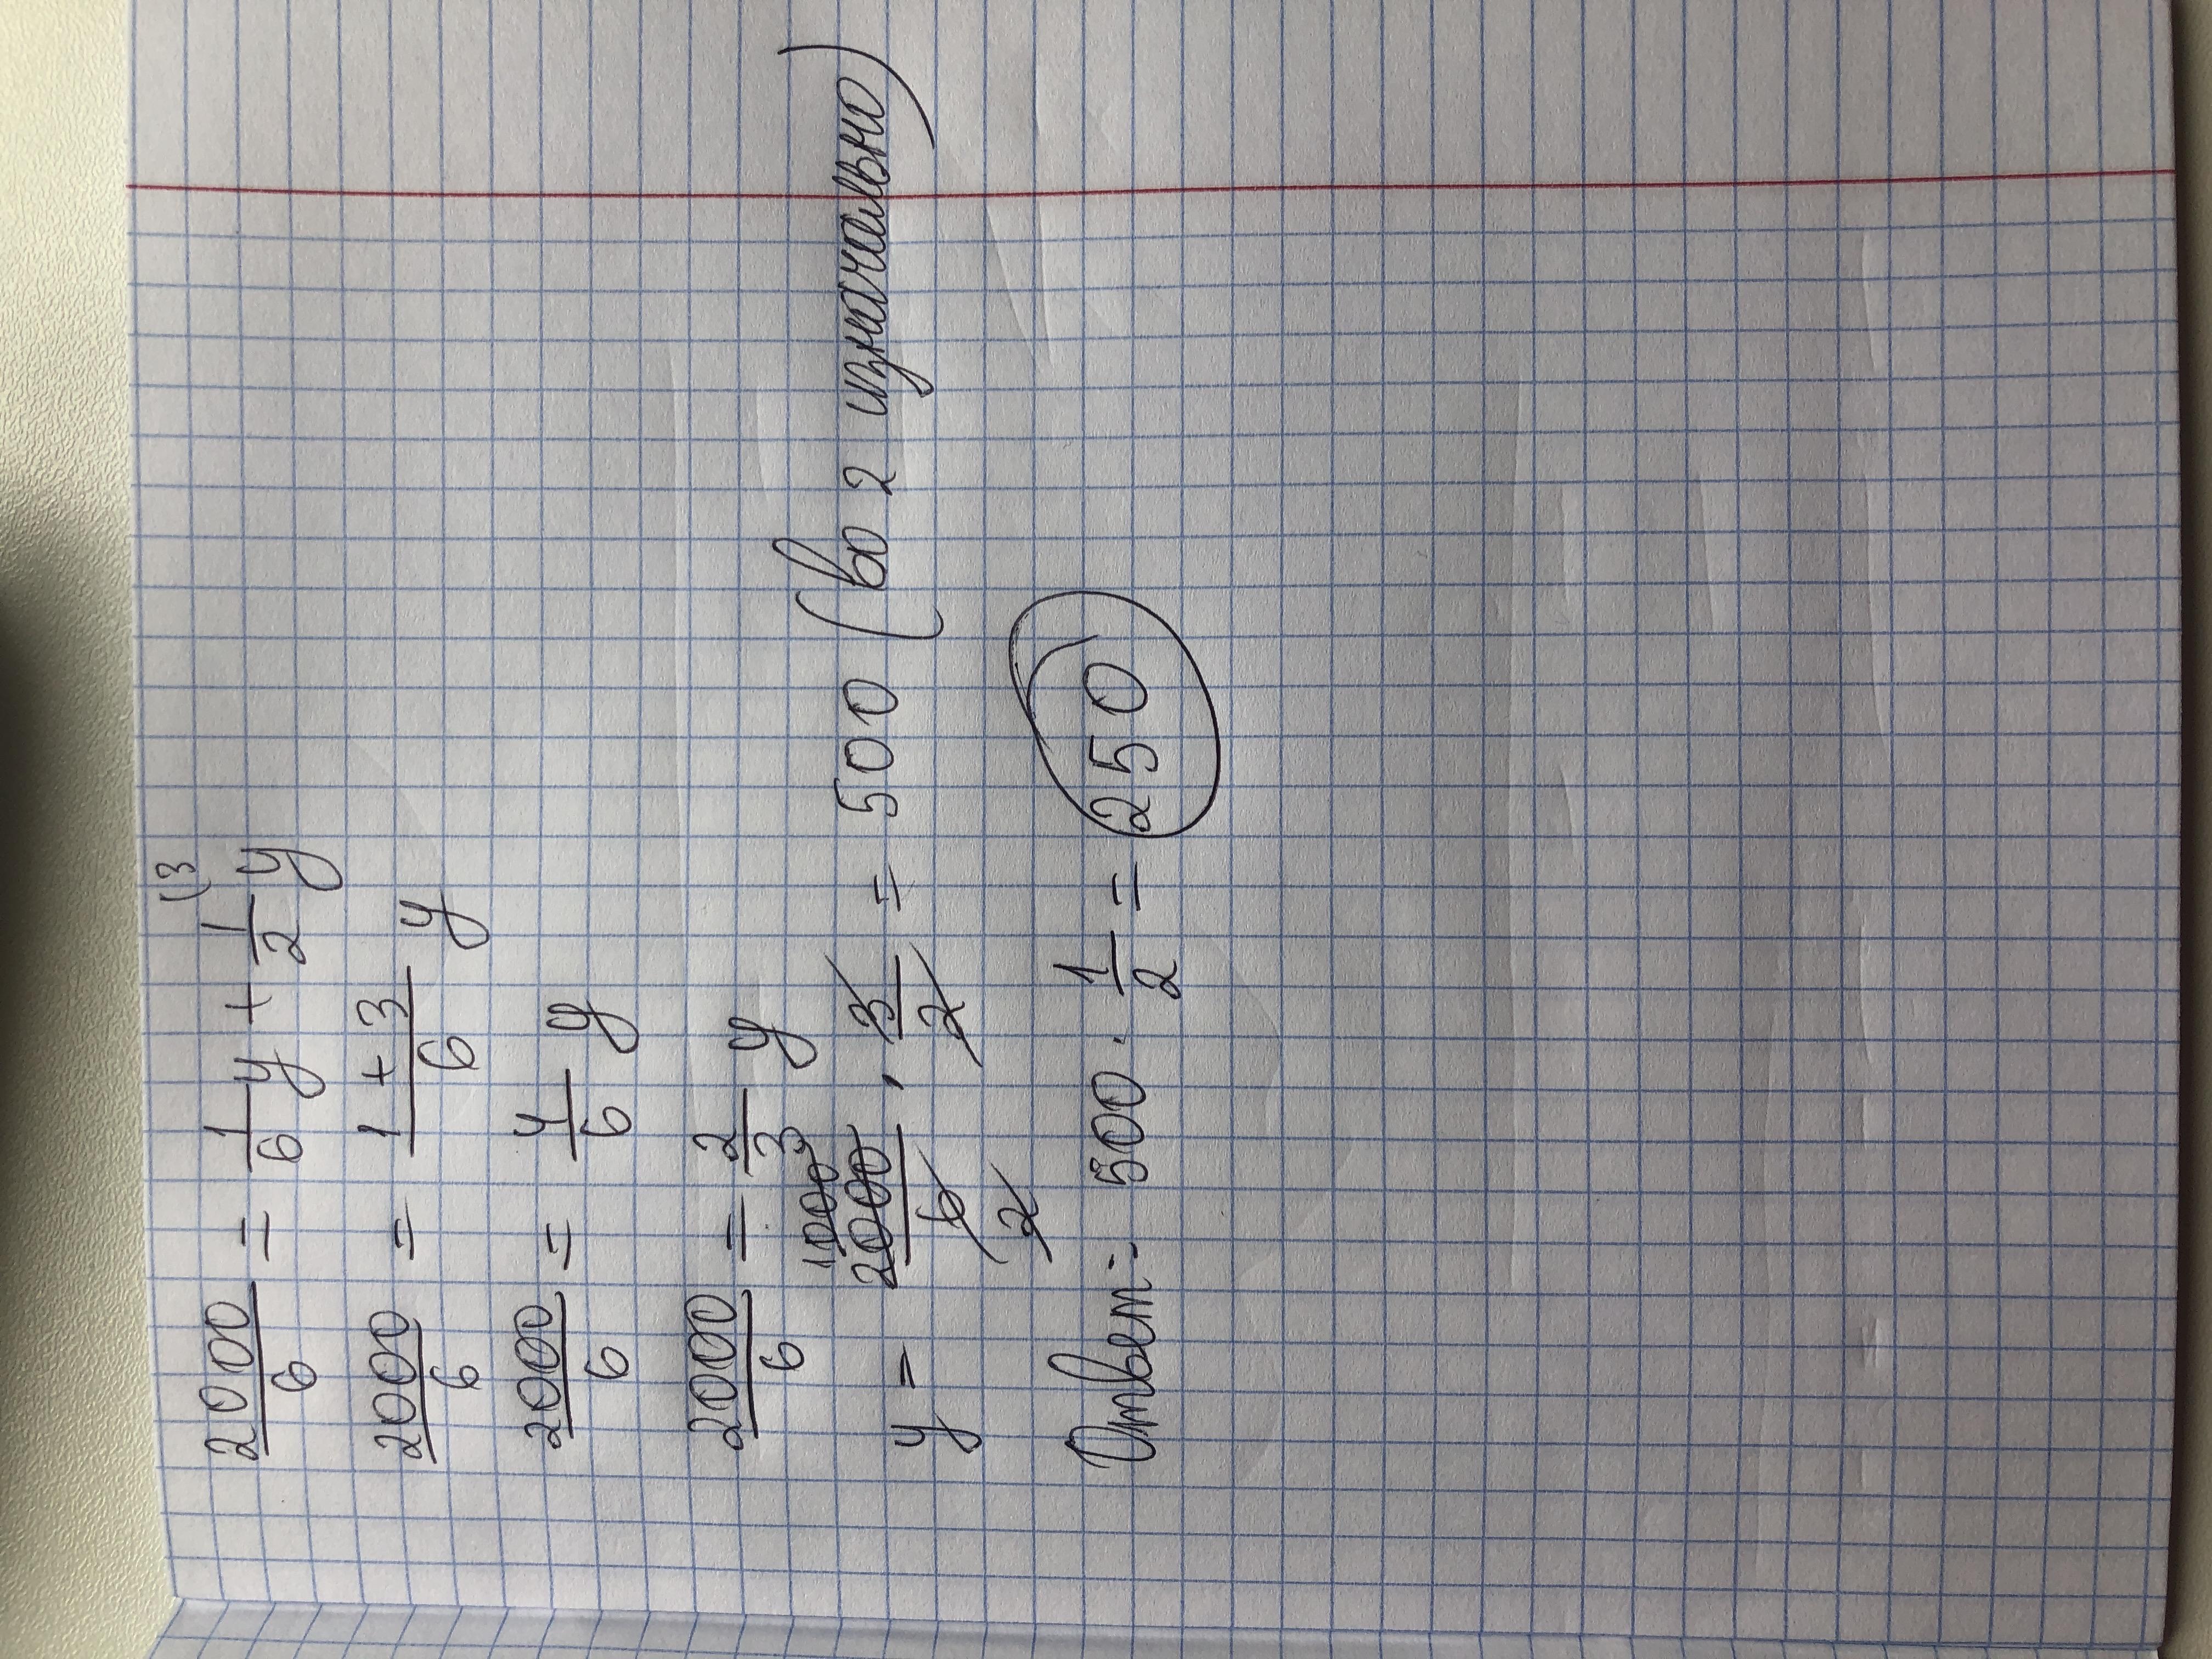 2000/6 = 1/6 y + 1/2 y (3
2000/6 = 1+3/6 y
2000/6 = 4/6 y
2000/6 = 2/3 y
y = 1000 2000/6 2 · 3/2 = 500 (во 2 изначально)
Ответ: 500 · 1/2 = 250